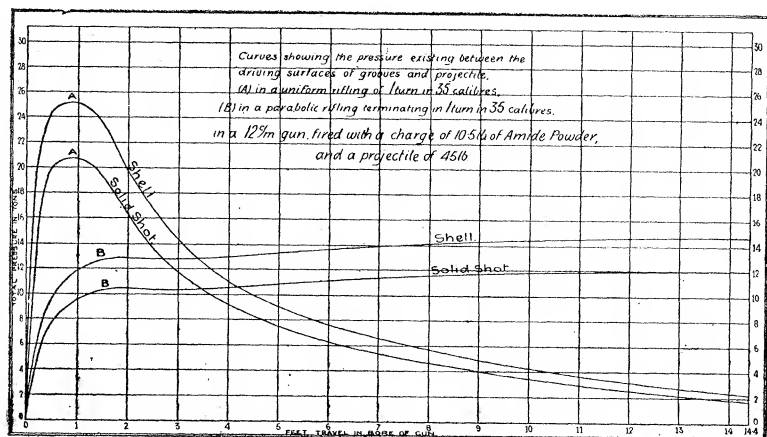 Curves showing the pressure existing between the
driving surfaces of grooves and projectile.
(A) in a uniform rifling of 1 turn in 35 calibres,
(B) in a parabolic rifling terminating in 1 turn in 35 calibres.
in a 12c/m gun, fired with a charge of 10·5lb of Amide Powder,
and a projectile of 45lb
30
28
26
24
22
20
18
16
14
12
10
8
6
4
2
0
TOTAL PRESSURE IN TONS
A
A
Shell
Solid Shot
B
B
Shell.
Solid Shot
30
28
26
24
22
20
18
16
14
12
10
8
6
4
2
0
0 1 2 3 4 5 6 7 8 9 10 11 12 13 14 14·4
FEET. TRAVEL IN BORE OF GUN.